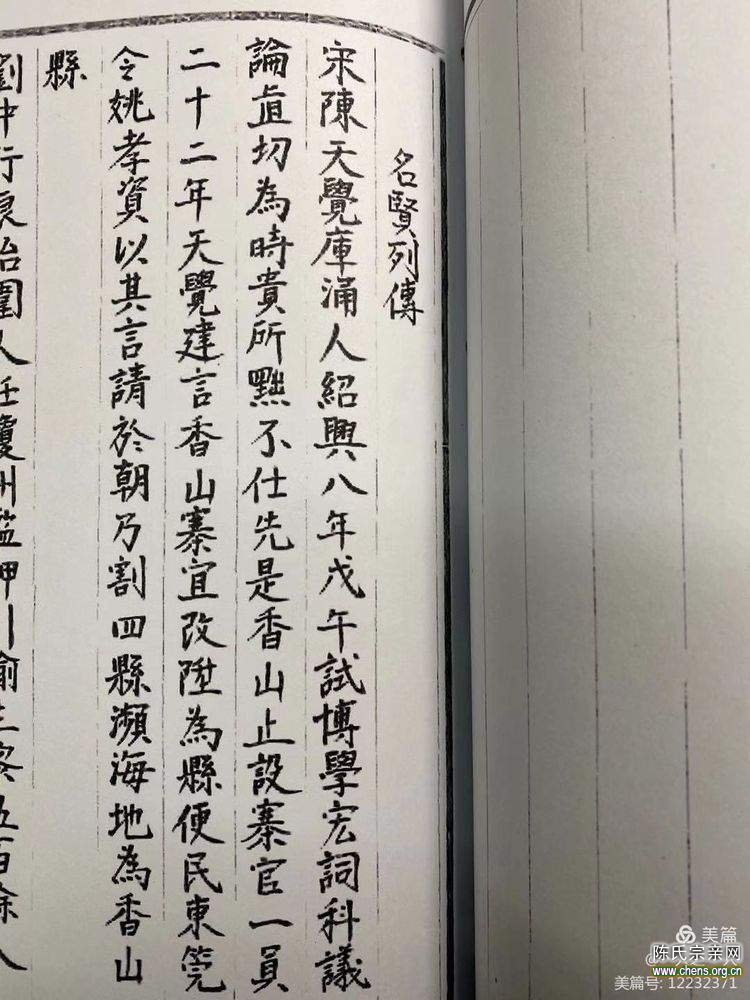 名賢列傳
宋陳天覺庫涌人紹興八年戊午試博學宏詞科議
論直切為時貴所黜不仕先是香山止設寨官一員
二十二年天覺建言香山寨宜改陞為縣便民東筦
令姚孝資以其言請於朝乃割四縣瀕海地為香山
縣
劉中行良治圍人任瓊州監押引
五百餘人
美篇
陈氏宗亲网
www.chens.org.cn
美篇号: 12232371